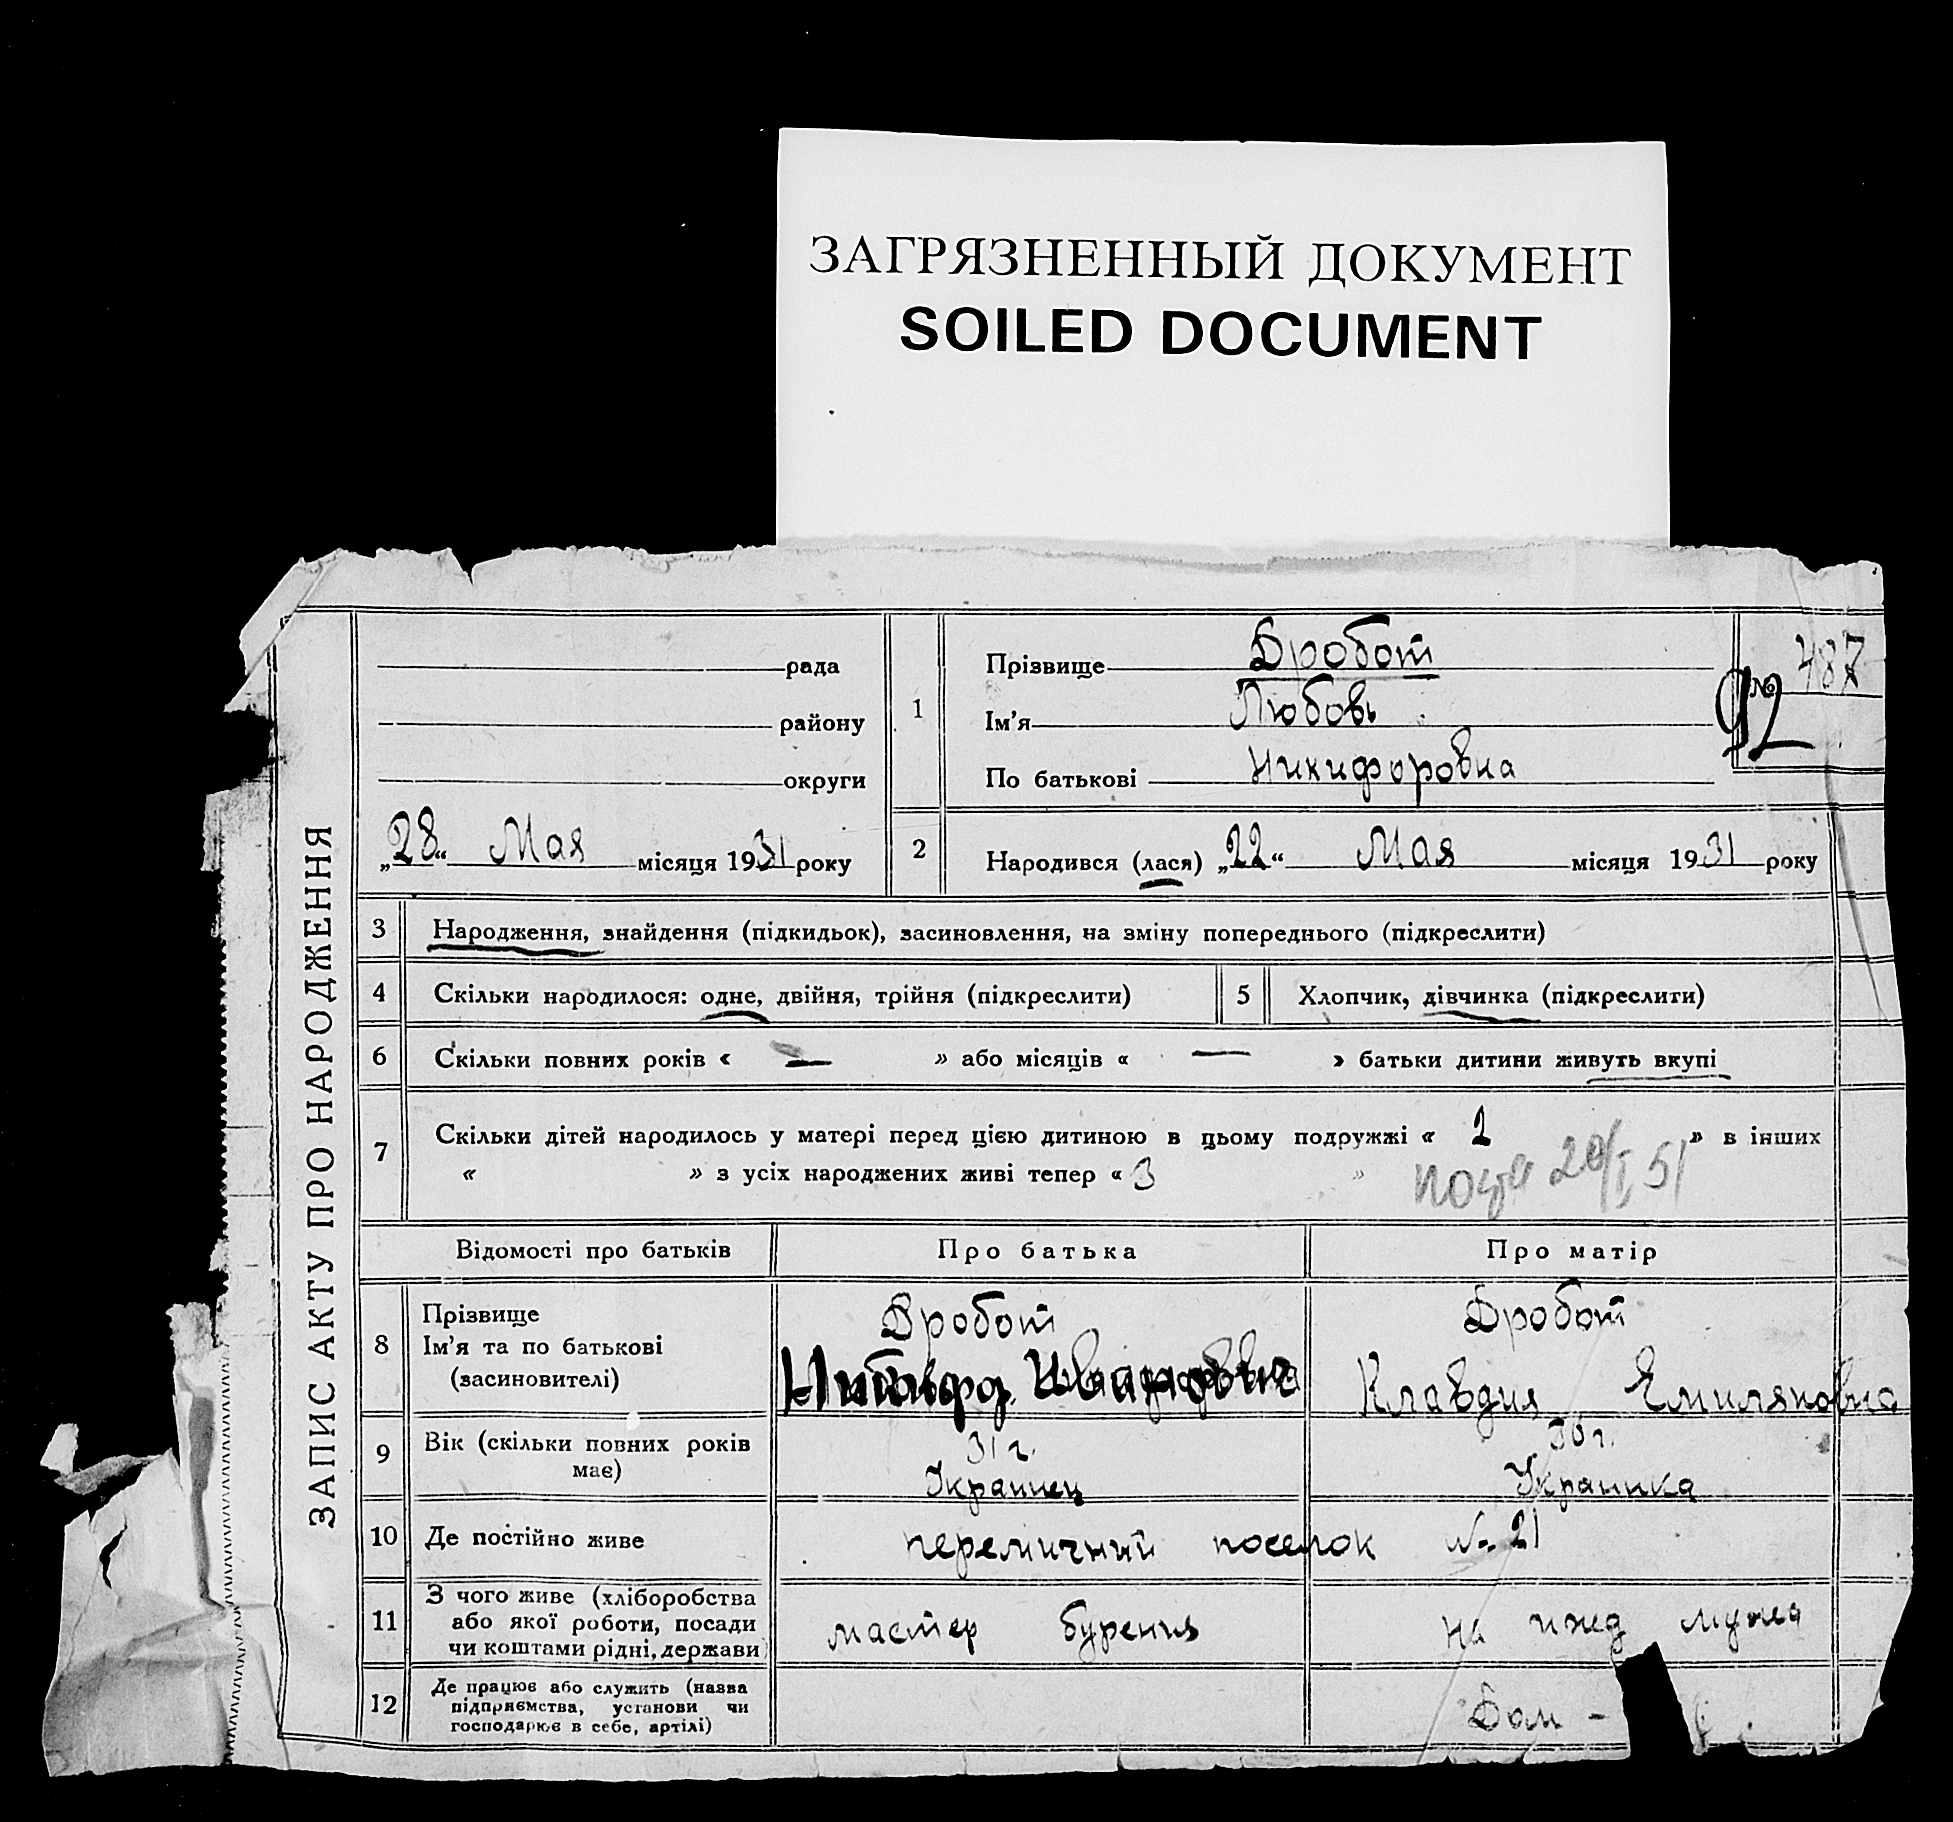 ЗАГРЯЗНЕННЫЙ ДОКУМЕНТ
SOILED DOCUMENT
ЗАПИС АКТУ ПРО НАРОДЖЕННЯ
рада
району
округи
„28“ Мая місяця 1931 року
1
Прізвище Дробот
Ім’я Любовь
По батькові Никифоровна
№ 487
92
2
Народився (лася) „22“ Мая місяця 1931 року
3 Народження, знайдення (підкидьок), засиновлення, на зміну попереднього (підкреслити)
4 Скільки народилося: одне, двійня, трійня (підкреслити)
5 Хлопчик, дівчинка (підкреслити)
6 Скільки повних років « — » або місяців « — » батьки дитини живуть вкупі
7 Скільки дітей народилось у матері перед цією дитиною в цьому подружжі « 2 » в інших
« » з усіх народжених живі тепер « 3 »
20/I 51
Відомості про батьків Про батька Про матір
8 Прізвище
Ім’я та по батькові
(засиновителі)
Дробот
Иванович
Дробот
Клавдия Емиляновна
9 Вік (скільки повних років
має)
31 г.
Украинец
30 г.
Украинка
10 Де постійно живе
поселок № 21
11 З чого живе (хліборобства
або якої роботи, посади
чи коштами рідні, держави)
мастер бурения
на ижд мужа
12 Де працює або служить (назва
підприємства, установи чи
господарює в себе, артілі)
Дом -